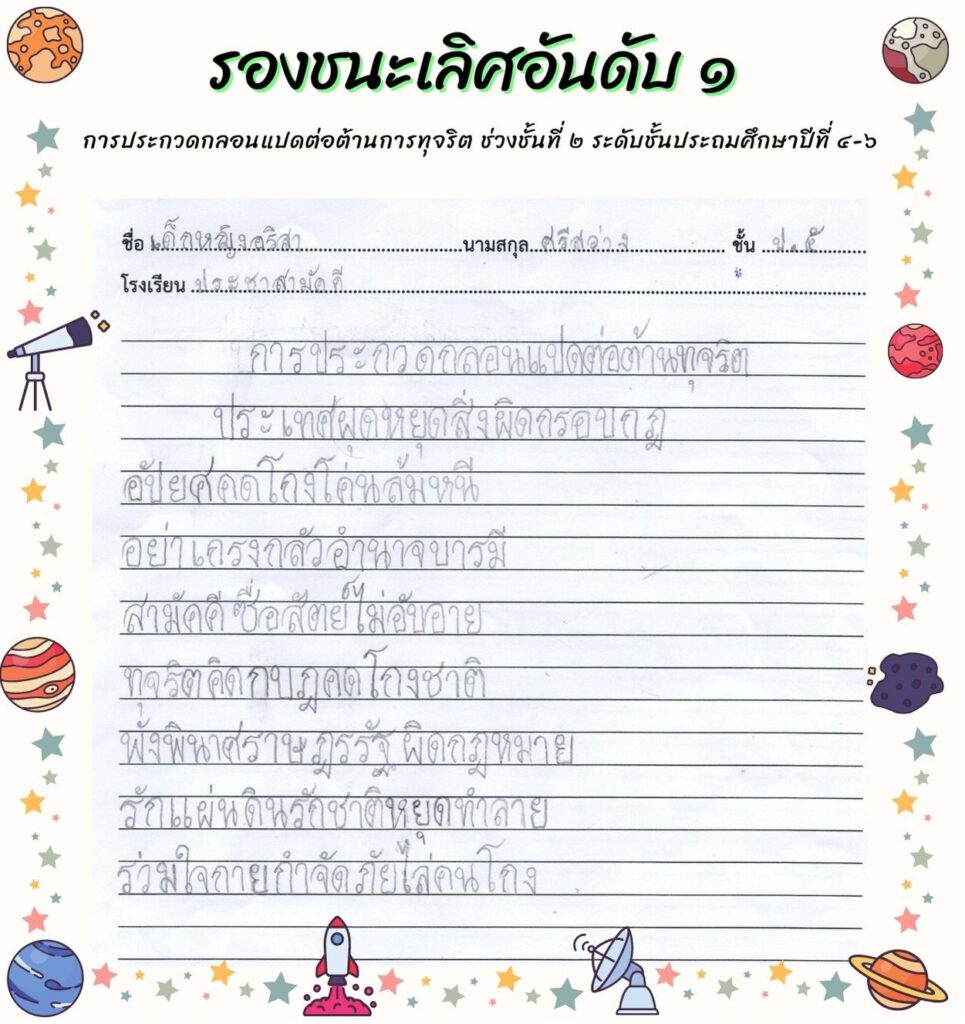 รองชนะเลิศอันดับ ๑
การประกวดกลอนแปดต่อต้านการทุจริต ช่วงชั้นที่ ๒ ระดับชั้นประถมศึกษาปีที่ ๔-๖
ชื่อ เด็กหญิงอริสา นามสกุล ศรีสว่าง ชั้น ป.๕
โรงเรียน ประชาสามัคคี
การประกวดกลอนแปดต่อต้านทุจริต
ประเทศผุดหยุดสิ่งผิดกรอบกฎ
อัปยศคดโกงโค่นล้มหนี
อย่าเกรงกลัวอำนาจบารมี
สามัคคีซื่อสัตย์ไม่อับอาย
ทุจริตคิดกบฎคดโกงชาติ
พังพินาศราษฎรรัฐผิดกฎหมาย
รักแผ่นดินรักชาติหยุดทำลาย
ร่วมใจกายกำจัดภัยไล่คนโกง